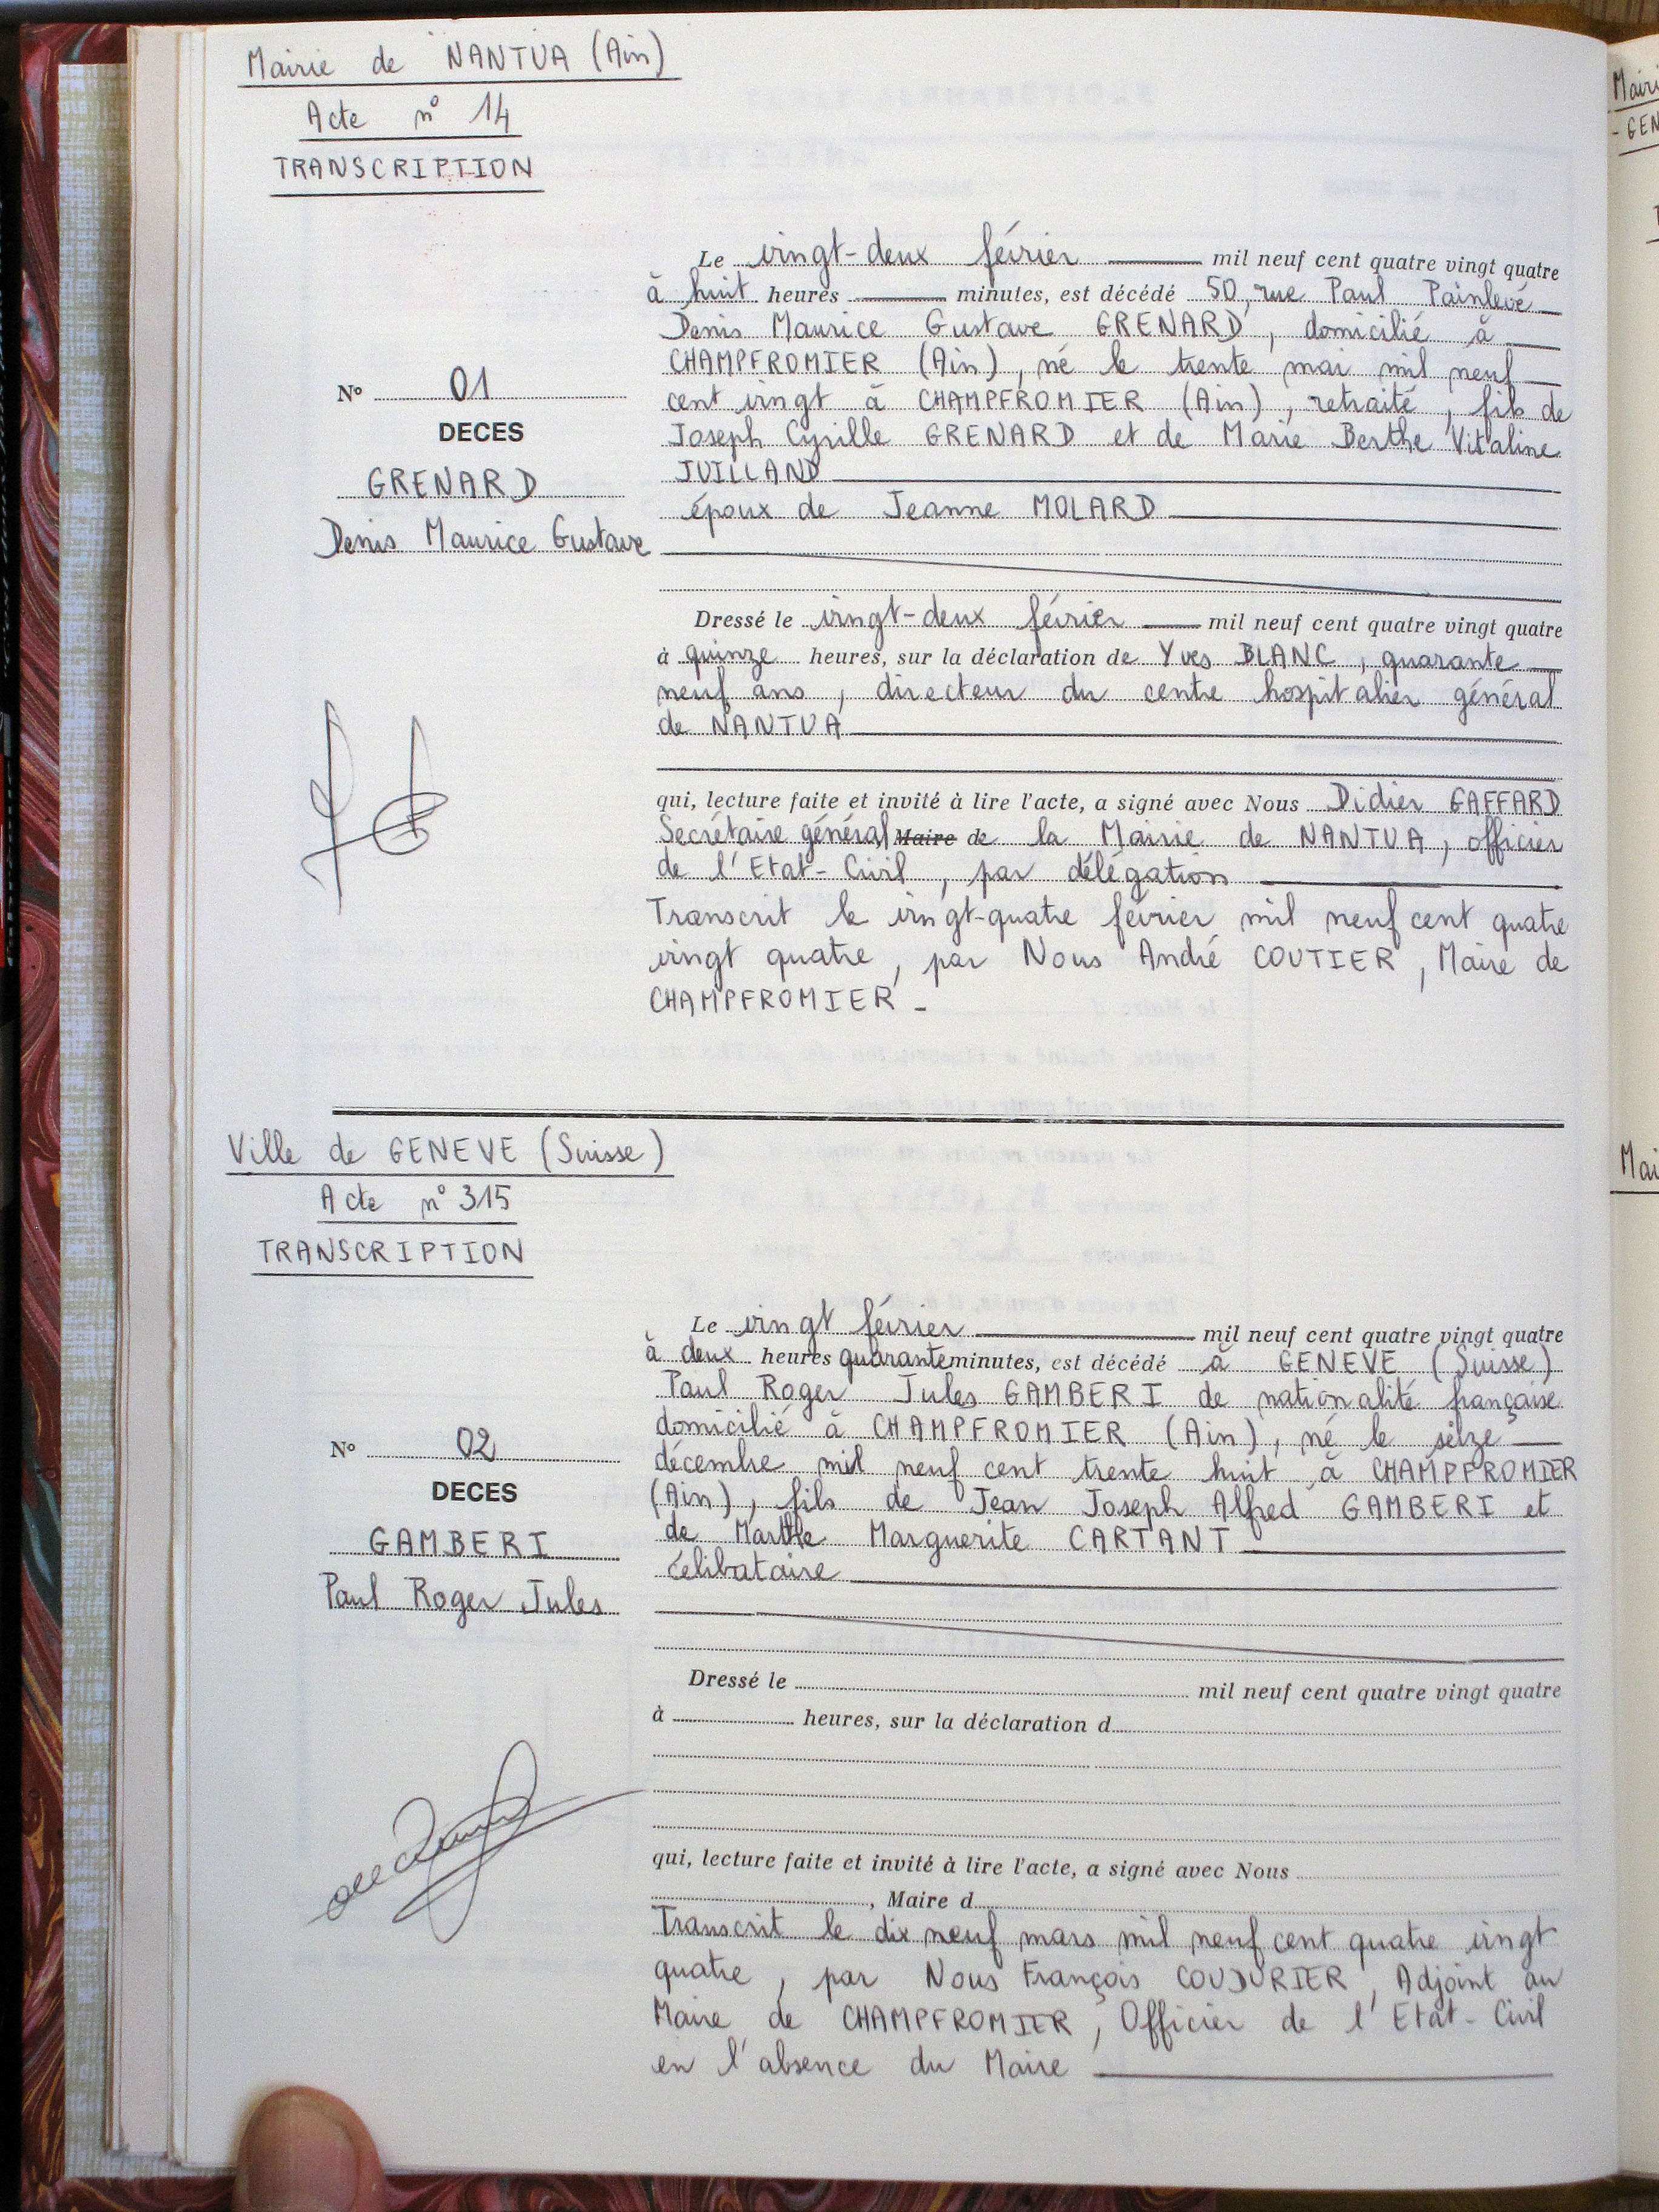 Mairie de NANTUA (Ain)
Acte n° 14
TRANSCRIPTION
Le vingt-deux février mil neuf cent quatre vingt quatre
à huit heures minutes, est décédé 50, rue Paul Painlevé
Denis Maurice Gustave GRENARD, domicilié à
CHAMPFROMIER (Ain), né le trente mai mil neuf
cent vingt à CHAMPFROMIER (Ain), retraité, fils de
Joseph Cyrille GRENARD et de Marie Berthe Vitaline
JUILLAND
époux de Jeanne MOLARD
N° 01
DECES
GRENARD
Denis Maurice Gustave
Dressé le vingt-deux février mil neuf cent quatre vingt quatre
à quinze heures, sur la déclaration de Yves BLANC, quarante
neuf ans, directeur du centre hospitalier général
de NANTUA
qui, lecture faite et invité à lire l'acte, a signé avec Nous Didier GAFFARD
Secrétaire général Maire de la Mairie de NANTUA, officier
de l'Etat-Civil, par délégation
Transcrit le vingt-quatre février mil neuf cent quatre
vingt quatre, par Nous André COUTIER, Maire de
CHAMPFROMIER -
Ville de GENEVE (Suisse)
Acte n° 315
TRANSCRIPTION
Le vingt février mil neuf cent quatre vingt quatre
à deux heures quarante minutes, est décédé à GENEVE (Suisse)
Paul Roger Jules GAMBERI de nationalité française
domicilié à CHAMPFROMIER (Ain), né le seize
décembre mil neuf cent trente huit à CHAMPFROMIER
(Ain), fils de Jean Joseph Alfred GAMBERI et
de Marthe Marguerite CARTANT
célibataire
N° 02
DECES
GAMBERI
Paul Roger Jules
Dressé le mil neuf cent quatre vingt quatre
à heures, sur la déclaration d
qui, lecture faite et invité à lire l'acte, a signé avec Nous
, Maire d
Transcrit le dix neuf mars mil neuf cent quatre vingt
quatre, par Nous François COUDURIER, Adjoint au
Maire de CHAMPFROMIER, Officier de l'Etat-Civil
en l'absence du Maire
Mairi
- GEN
Mai